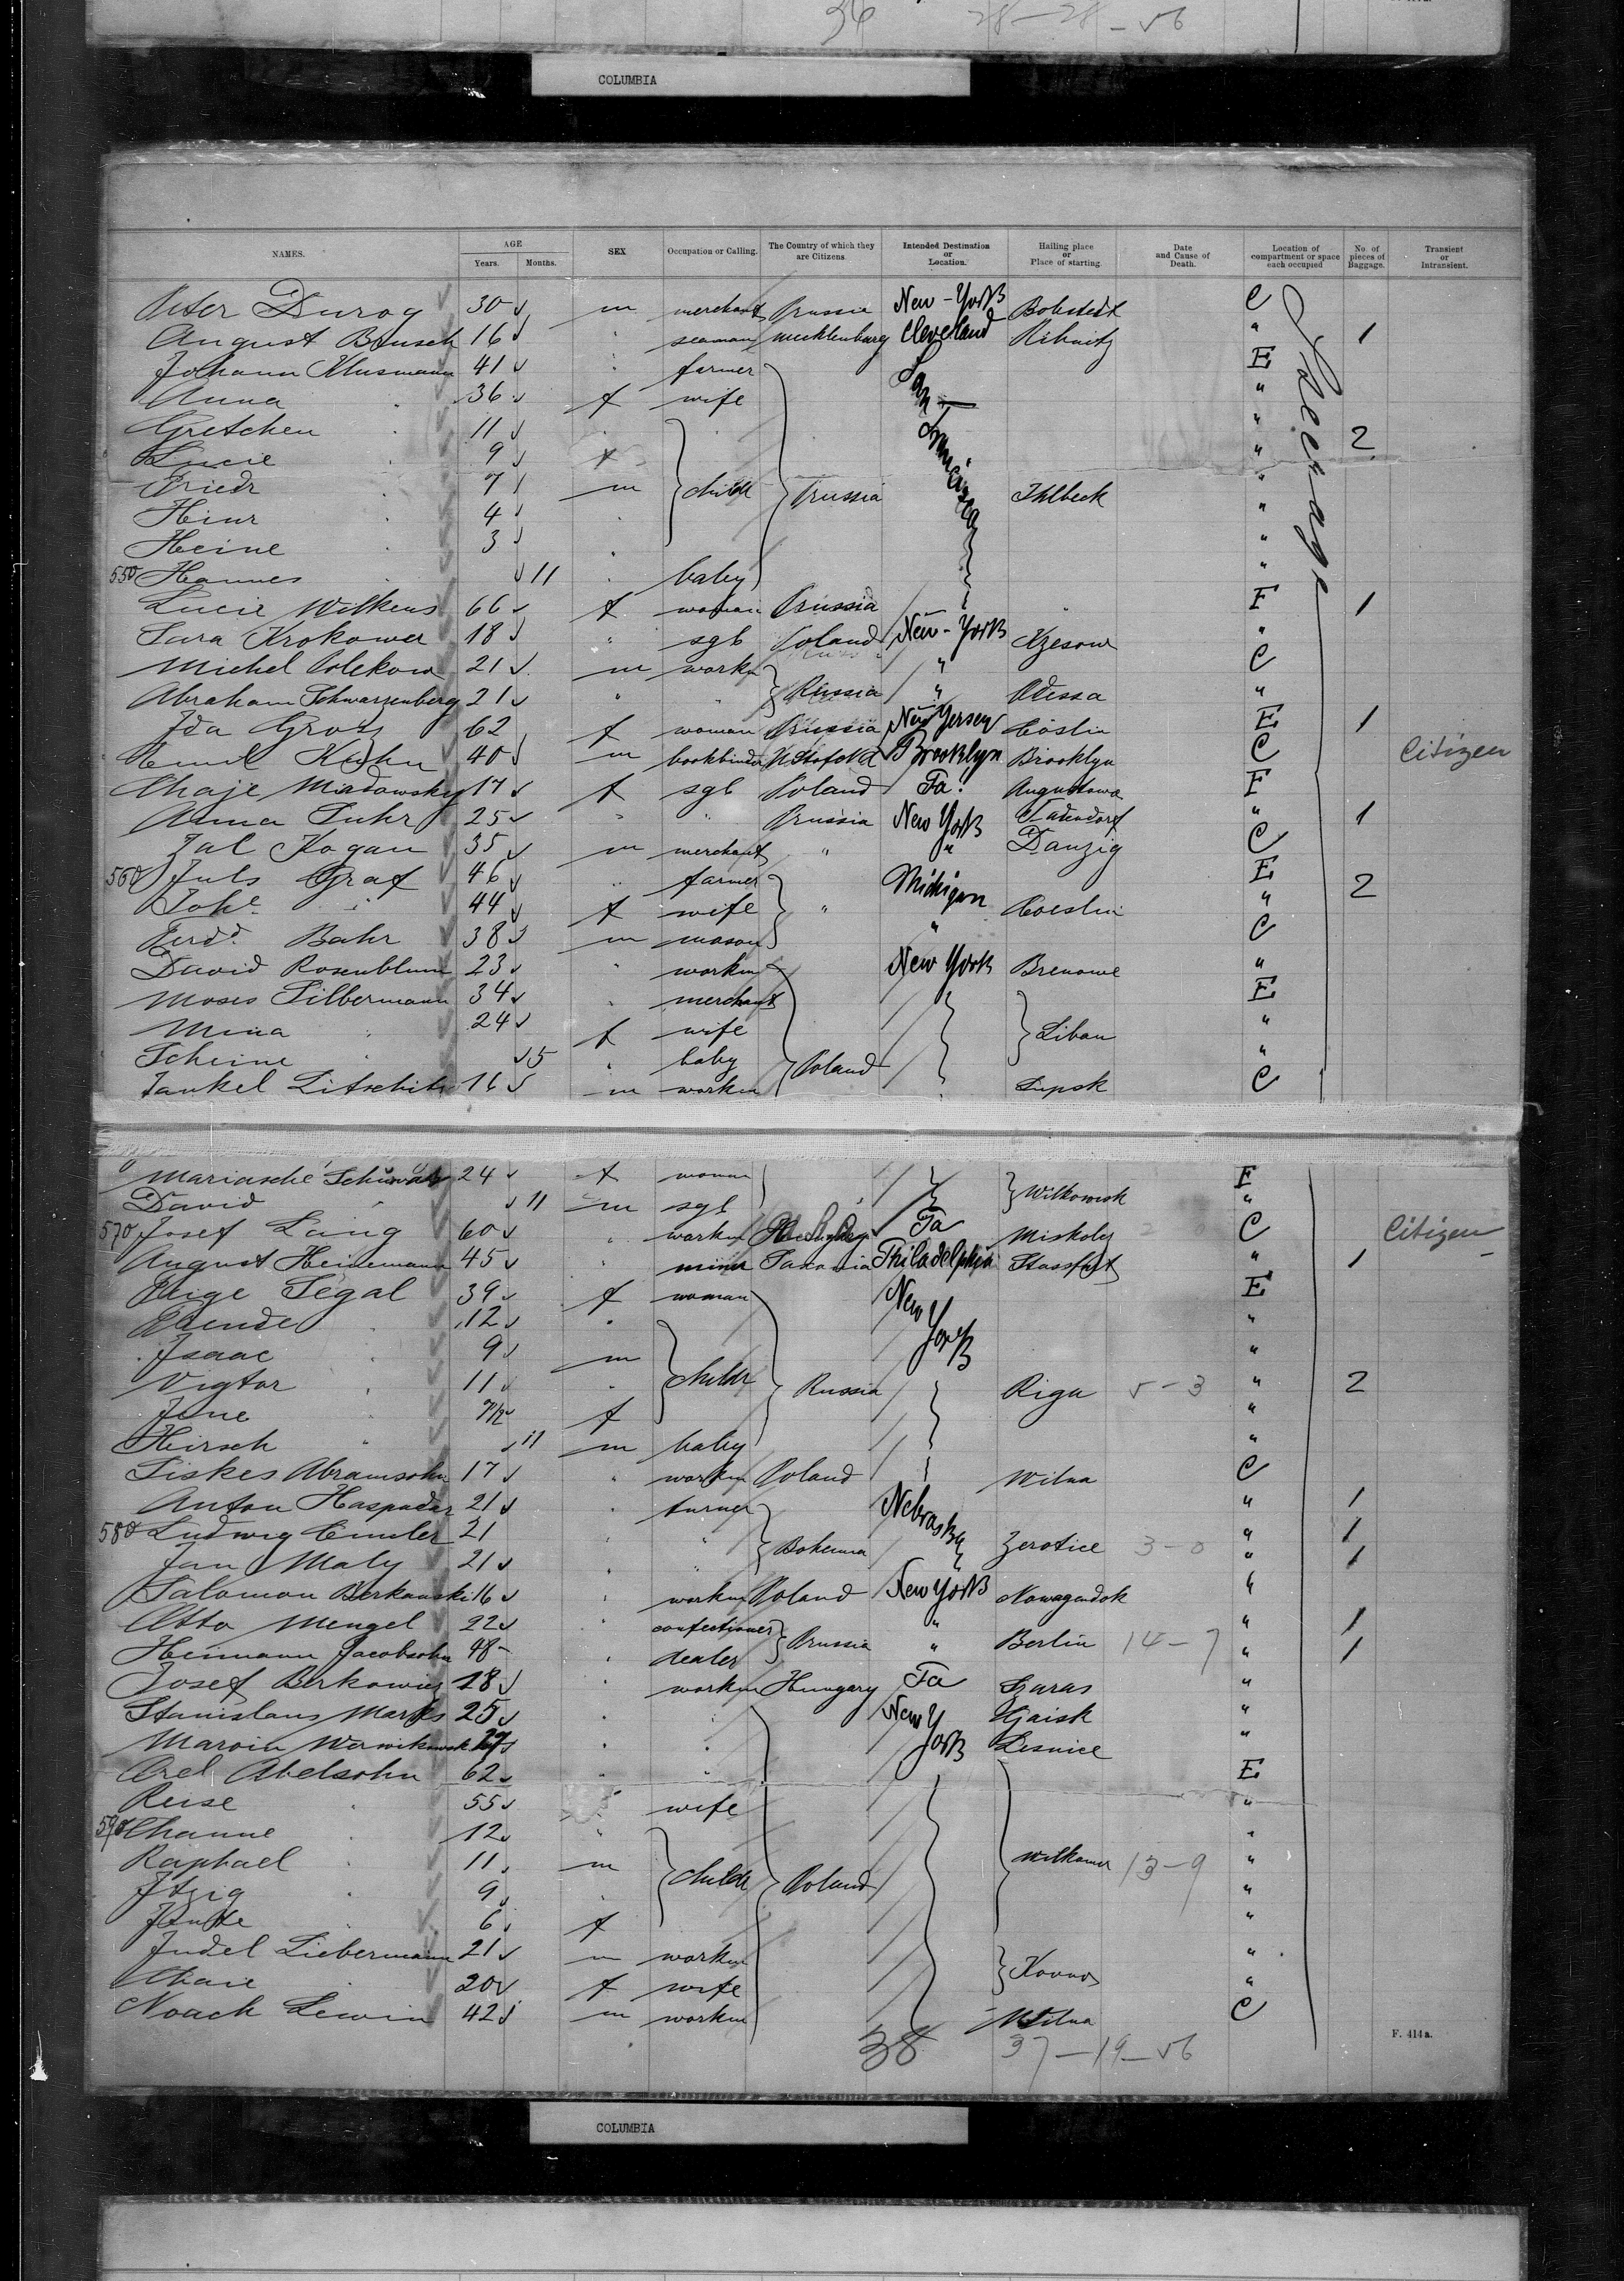 36 28-28-56
COLUMBIA
NAMES. AGE Years. Months. SEX Occupation or Calling. The Country of which they are Citizens. Intended Destination or Location. Hailing place or Place of starting. Date and Cause of Death. Location of compartment or space each occupied No. of pieces of Baggage. Transient or Intransient.
Peter Durog 30 m merchant Prussia New-York Bobstedt C
August Brusch 16 " seaman Mecklenburg Cleveland Ribnitz " 1
Johann Klusmann 41 " farmer San Francisco E
Anna 36 f wife "
Gretchen 11 " " 2
Lucie 9 f "
Friedr 7 m childr Prussia Ihlbeck "
Heinr 4 " "
Heine 3 " "
550 Hannes 11 " baby "
Lucie Wilkens 66 f woman Prussia " F 1
Sara Krokower 18 " sgl Poland New-York "
Michel Polekow 21 m workm " C
Abraham Schwarzenberg 21 " " Russia " Odessa "
Ida Gross 62 f woman Prussia New Jersey Cöslin E 1
Emil Kuhn 40 m bookbinder U St of NA Brooklyn Brooklyn C Citizen
Chaje 17 f sgl Poland Pa. Augustowo F
Anna Fuhr 25 " " Prussia New York " 1
Zal Kogan 35 m merchant " " Danzig C
560 Juls Graf 46 " farmer Michigan E 2
Johe " 44 f wife " " Coeslin "
Ferdd Bahr 38 m mason C
David Rosenblum 23 " workm New York "
Moses Silbermann 34 " merchant E
Mina " 24 f wife Libau "
Scheine " 5 " baby Poland "
Jankel 16 m workm Lupsk C
Mariasche Schuwal 24 f woman F
David " 11 m sgl "
570 Josef Lang 60 " workm Pa Miskolz C Citizen
August Heinemann 45 " miner Saxonia Philadelphia Stassfurt " 1
Feige Segal 39 f woman New York E
12 " "
Isaac 9 m "
Vigtor 11 " childr Russia Riga 5-3 " 2
Jene 7 1/2 f "
Hirsch " 11 m baby "
Siskes Abramsohn 17 " workm Poland Wilna C
Anton Haspodar 21 " turner Nebraska " 1
580 Ludwig 21 " Bohemia Zerotice 3-0 " 1
Jan Maly 21 " " " 1
Salomon Berkowski 16 " workm Poland New York "
Otto Mengel 22 confectioner Prussia " " 1
Hermann Jacobsohn 48 " dealer " Berlin 14-7 " 1
Josef Berkowicz 18 " workm Hungary Pa Szaras "
Stanislaus Marks 25 " " New York "
Marcin 27 " " Lesnice "
Orel Abelsohn 62 " " E
Reise 55 " wife "
590 Channe 12 " "
Raphael 11 m childr Poland Wilkomir 13-9 "
Itzig 9 " "
6 f "
Judel Liebermann 21 m workm Kovno "
Chaie 20 f wife "
Noach Lewin 42 m workm Wilna C
Steerage
38 37-19-56
F. 414a.
COLUMBIA